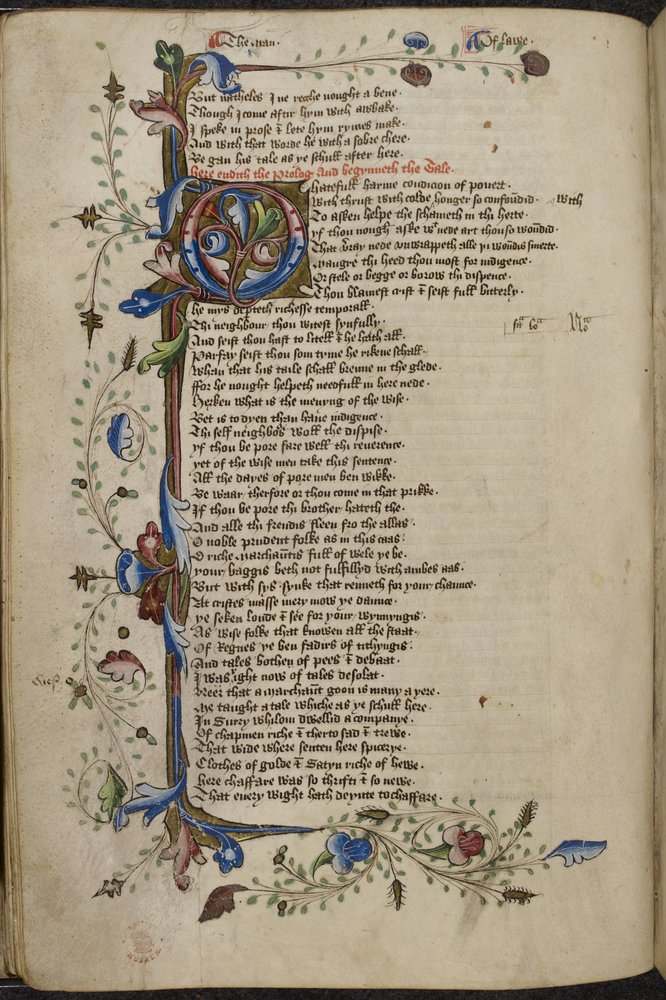 The man · Of lawe ·
But natheles I ne recche nought a bene ·
Though I come aftir hym with awbake ·
I speke in prose & lete hym rymes make ·
And with that worde he with a sobre chere ·
Be gan his tale as ye schull after here ·
here endith the prolog And begynneth the Tale ·
O hatefull harme condicion of povert ·
With thrust with colde honger so confoundid · With
To asken helpe the schameth in thi herte ·
yf thou nough aske wt nede art thou so woundid ·
That veray nede unwrappeth alle thi woundis smerte ·
Maugre thi heed thou most for indigence ·
Or stele or begge or borow thi dispence ·
Thou blamest crist & seist full bitterly ·
he mys departeth richesse temporall ·
Thi neighbour thou witest synfully ·
And seist thou hast to litell & he hath all ·
Parfay seist thou som tyme he rikene schall ·
Whan that his taile schall brenne in the glede ·
ffor he nought helpeth needfull in here nede ·
Herken what is the menyng of the wise ·
Bet is to dyen than haue indigence ·
Thi self neighbor woll the dispise ·
yf thou be pore fare well thi reuerence ·
yet of the wise men take this sentence ·
All the dayes of pore men ben wikke ·
Be waar therfore or thou come in that prikke ·
If thou be pore thi brother hateth the ·
And alle thi frendis fleen fro the allas ·
O noble prudent folke as in this caas ·
O riche marchauntis full of wele ye be ·
your baggis beth not fulfillyd with ambes aas ·
But with sys synke that renneth for your chaunce ·
At cristes masse mery mow ye daunce ·
ye seken londe & see for your wynnyngis ·
As wise folke that knowen all the staat ·
Of Regnes ye ben fadirs of tithyngis ·
And tales bothen of pees & debaat ·
I was right now of tales desolat ·
Neer that a marchaunt goon is many a yere ·
Me taught a tale whiche as ye schull here ·
In Surry whilom dwellid a companye ·
Of chapmen riche & therto sad & trewe ·
That wide where senten here spicerye ·
Clothes of golde & Satyn riche of hewe ·
here chaffare was so thrifti & so newe ·
That euery wight hath deynte to chaffare ·